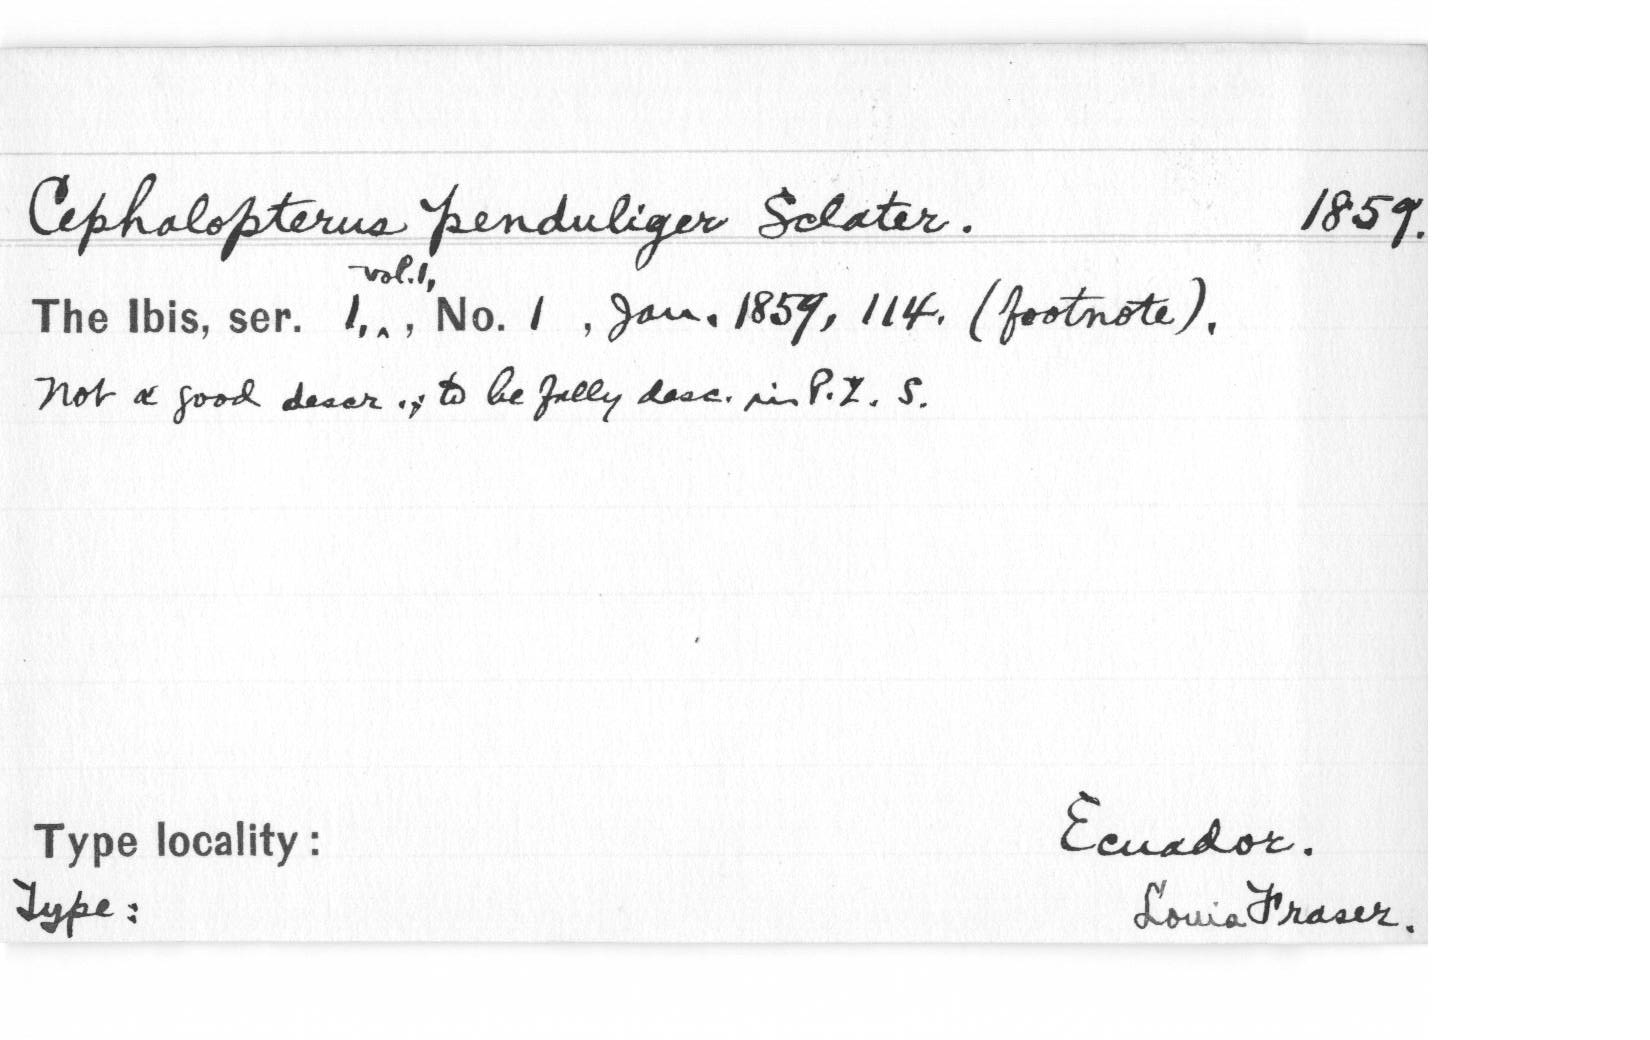 Cephalopterus penduliger Sclater. 1859.
The Ibis, ser. 1, vol. 1, , No. 1 , Jan. 1859, 114. (footnote).
Not a good descr.; to be fully desc. in P. Z. S.
Type locality: Ecuador.
Type: Louis Fraser.